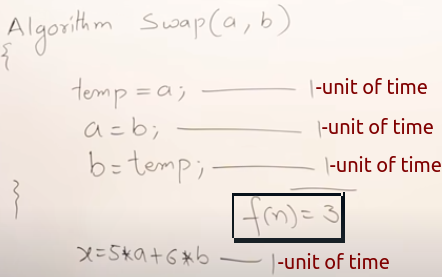 Algorithm Swap(a, b)
{
temp = a; 1-unit of time
a = b; 1-unit of time
b = temp; 1-unit of time
}
f(n) = 3
x = 5*a + 6*b 1-unit of time